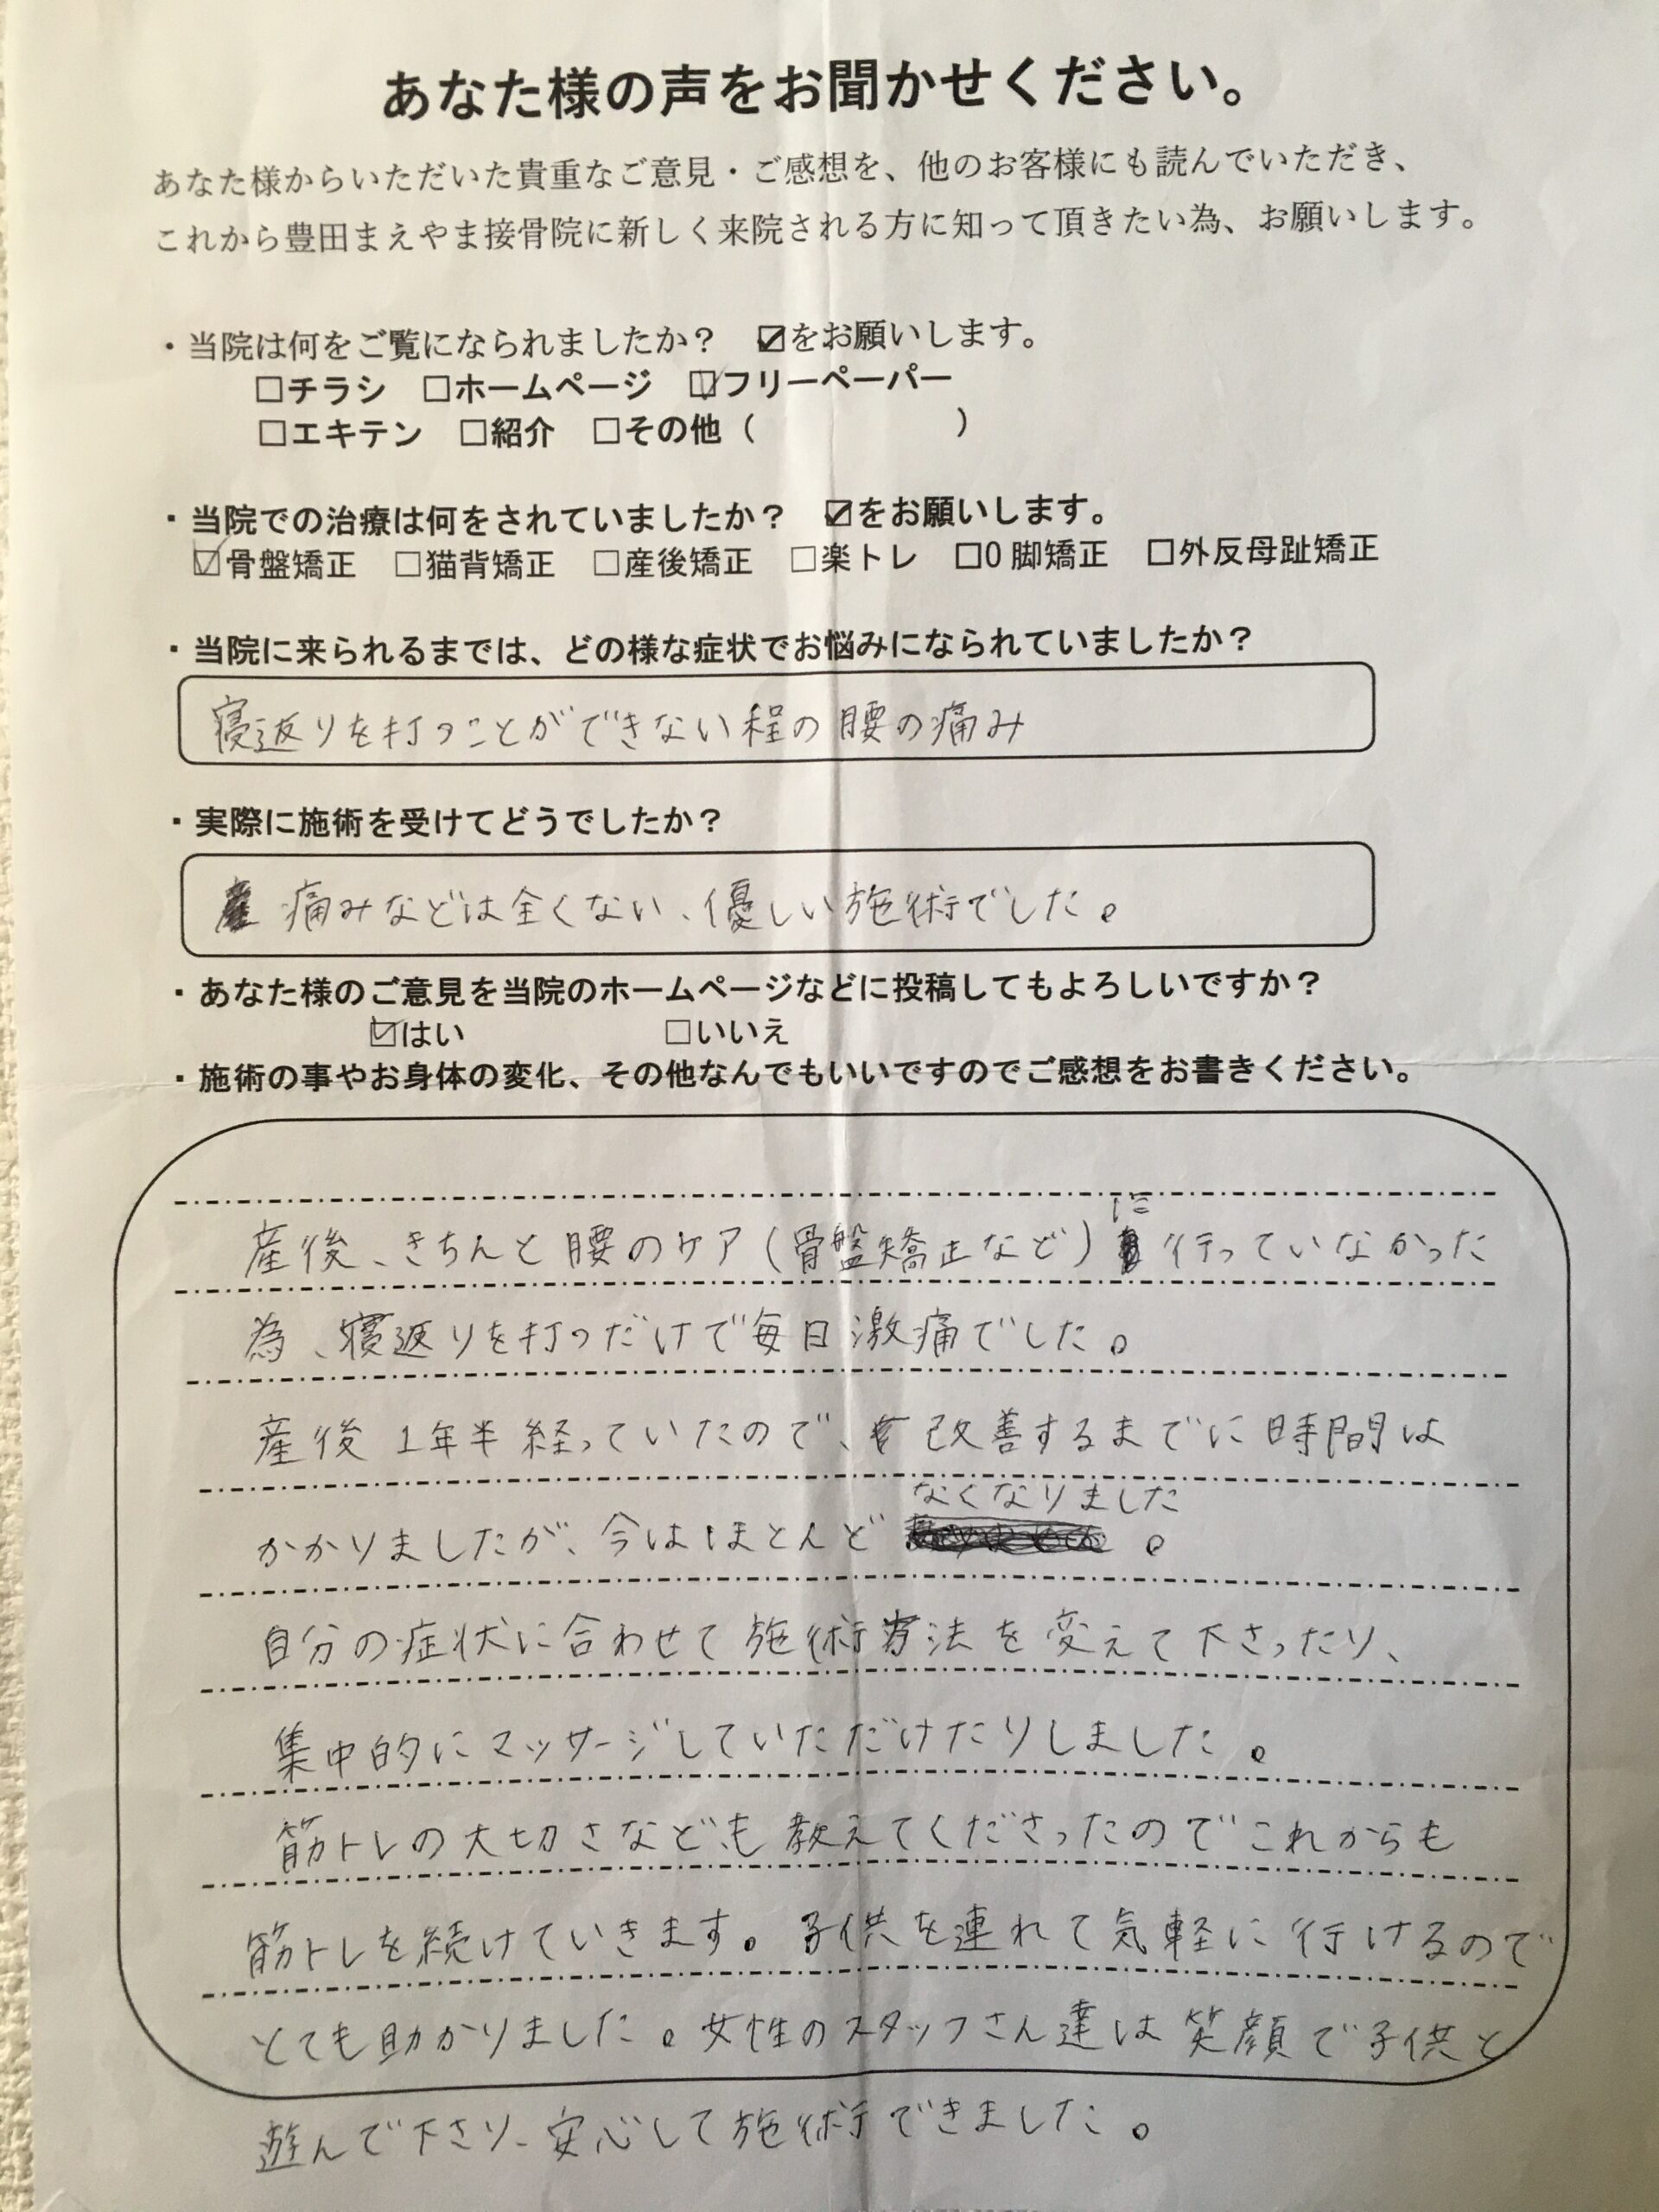 あなた様の声をお聞かせください。
あなた様からいただいた貴重なご意見・ご感想を、他のお客様にも読んでいただき、
これから豊田まえやま接骨院に新しく来院される方に知って頂きたい為、お願いします。
・当院は何をご覧になられましたか？　☑をお願いします。
□チラシ　□ホームページ　☑フリーペーパー
□エキテン　□紹介　□その他（　　　　　　）
・当院での治療は何をされていましたか？　☑をお願いします。
☑骨盤矯正　□猫背矯正　□産後矯正　□楽トレ　□O脚矯正　□外反母趾矯正
・当院に来られるまでは、どの様な症状でお悩みになられていましたか？
寝返りを打つことができない程の腰の痛み
・実際に施術を受けてどうでしたか？
痛みなどは全くない、優しい施術でした。
・あなた様のご意見を当院のホームページなどに投稿してもよろしいですか？
☑はい　□いいえ
・施術の事やお身体の変化、その他なんでもいいですのでご感想をお書きください。
産後、きちんと腰のケア（骨盤矯正など）に行っていなかった
為、寝返りを打つだけで毎日激痛でした。
産後1年半経っていたので、改善するまでに時間は
かかりましたが、今はほとんどなくなりました。
自分の症状に合わせて施術方法を変えて下さったり、
集中的にマッサージしていただけたりしました。
筋トレの大切さなども教えてくださったのでこれからも
筋トレを続けていきます。子供を連れて気軽に行けるので
とても助かりました。女性のスタッフさん達は笑顔で子供と
遊んで下さり、安心して施術できました。